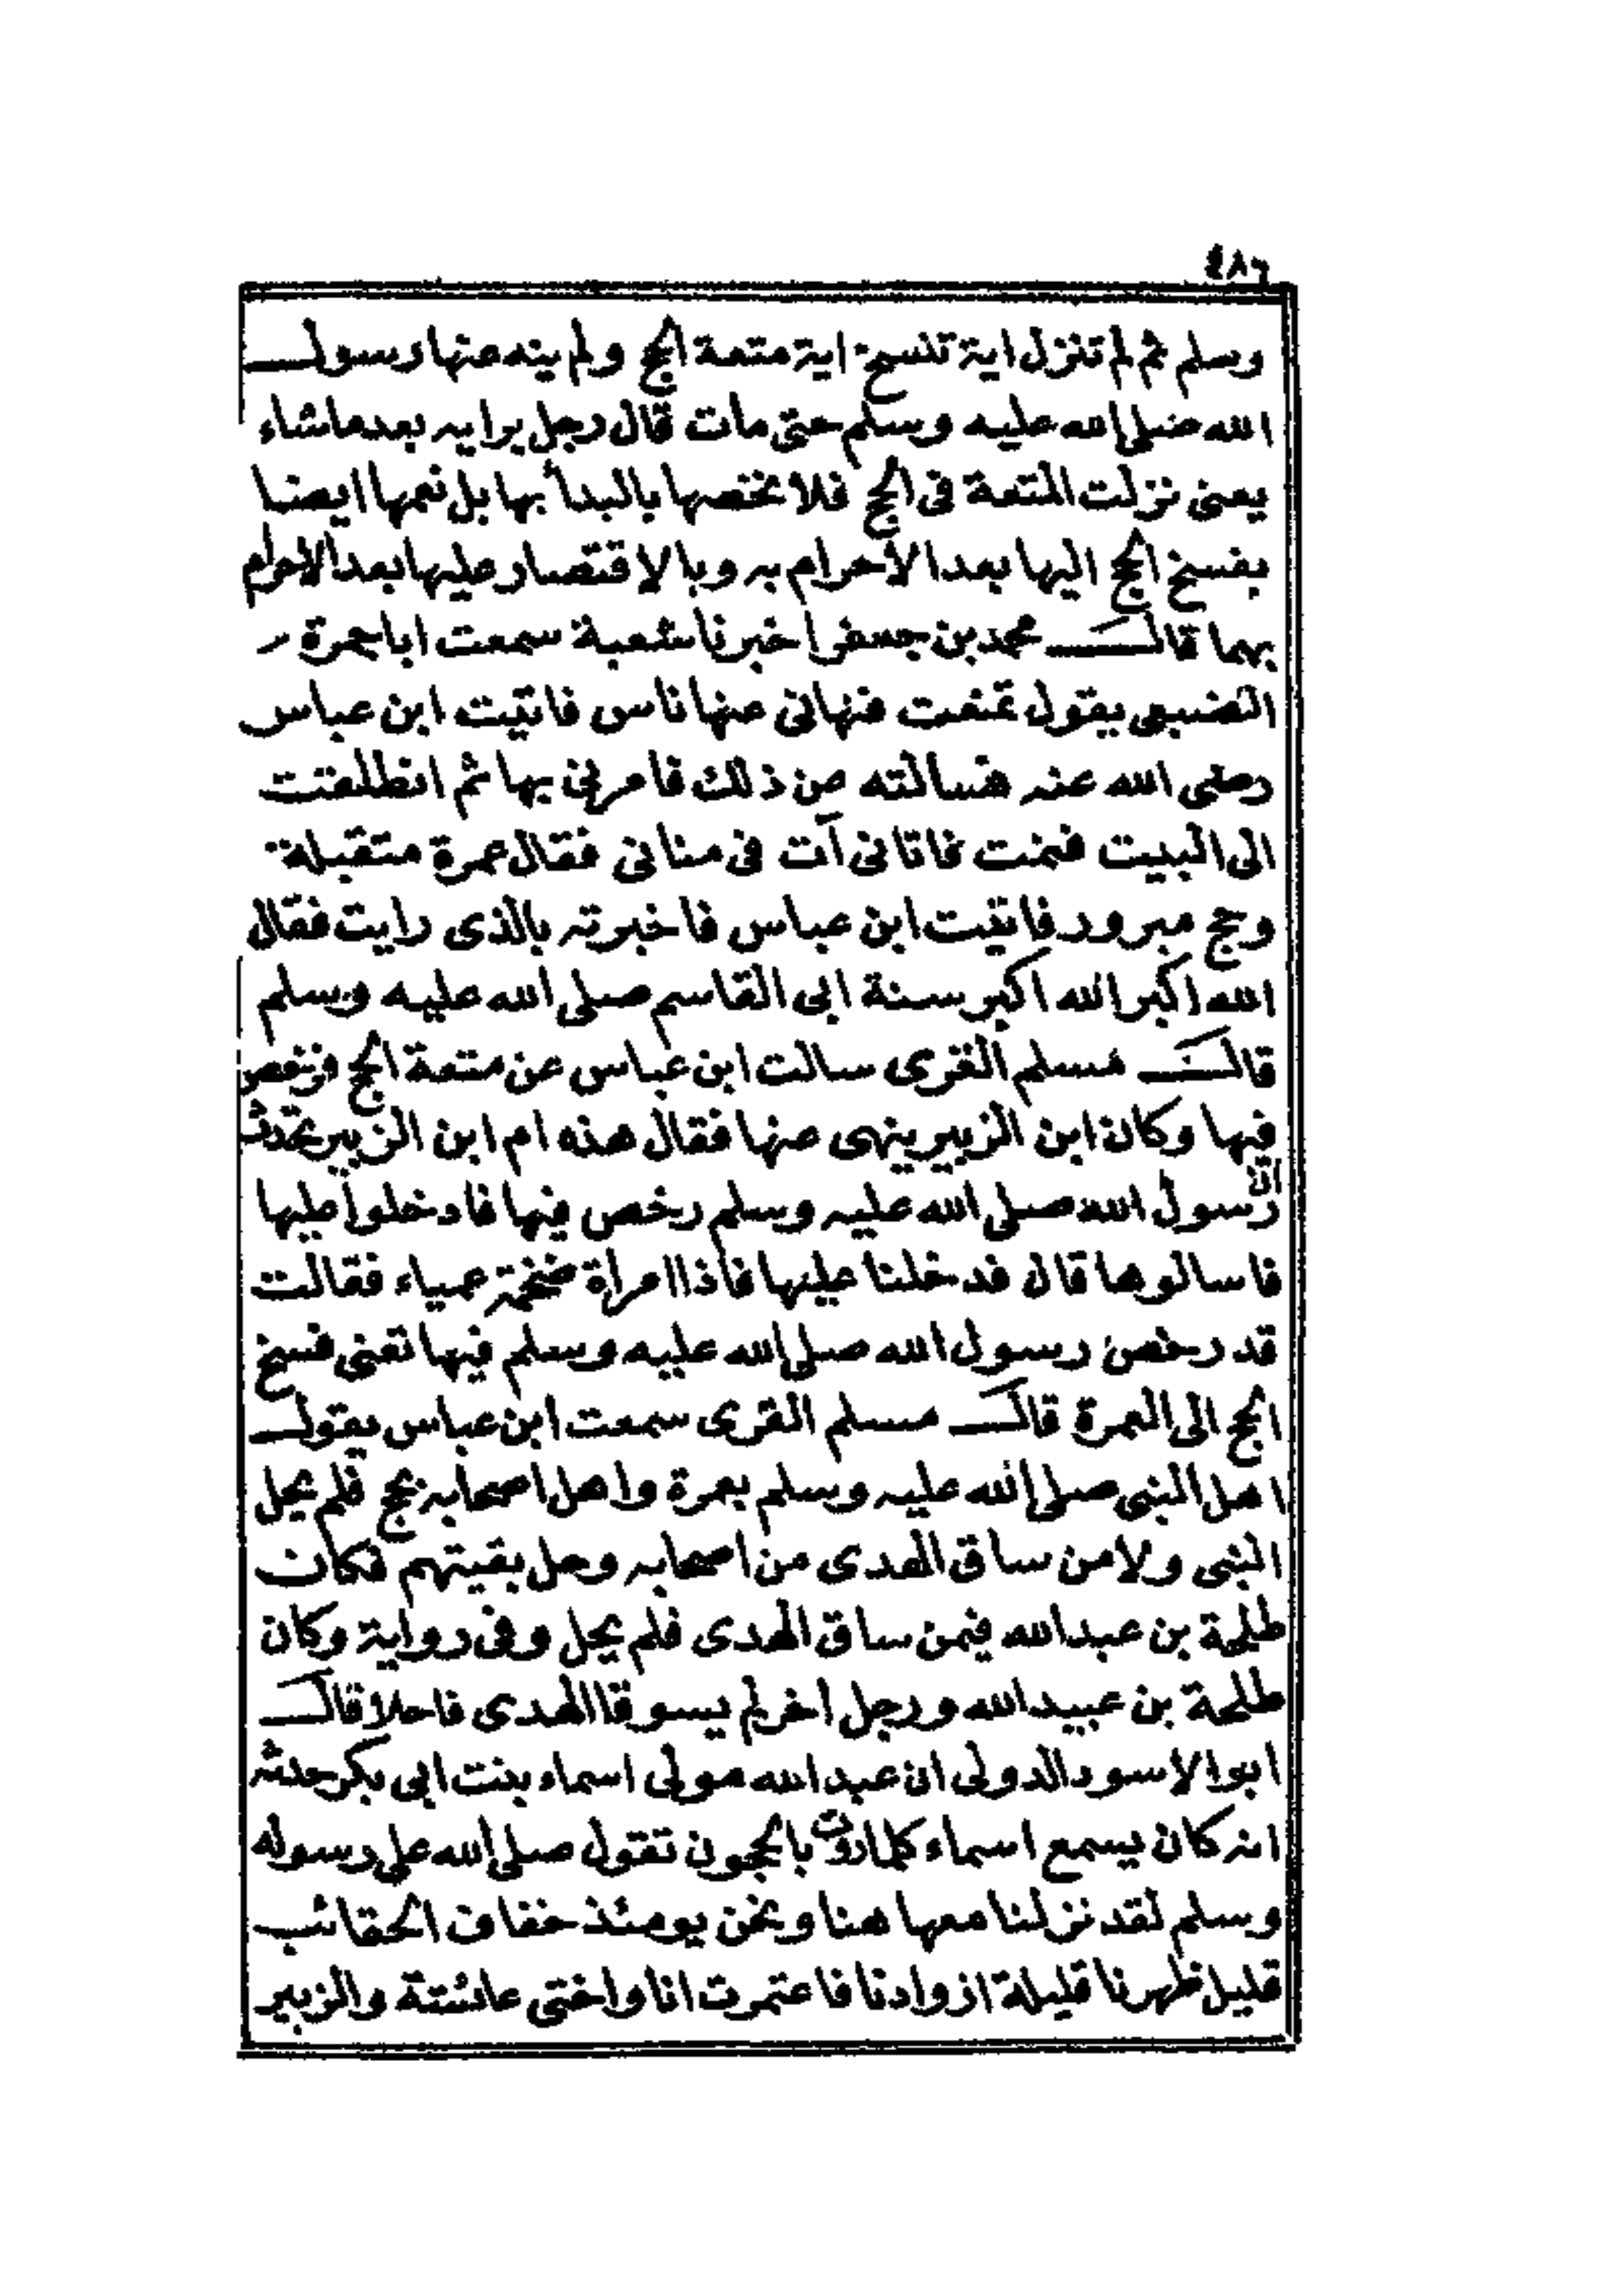 ٤٨٦
وسلم ثم لم تنزل اية تنسخ اية متعة الحج ولم ينه عنها رسول
الله صلى الله عليه وسلم حتى مات قال رجل برايه بعد ما شاء
يعنى نزلت المتعة فى الحج فلا نخصها بالبدأ بها بل نعمها ايضا
بفسخ الحج اليها بعد الأحرام به وبالاقتصار عليها بعد الاحرام
بهما قال محمد بن جعفر اخبرنا شعبة سمعت ابا جمرة
الضبعى يقول تمتعت فنهانى عنها ناس فاتيت ابن عباس
رضى الله عنه فسالته عن ذلك فامرنى بها ثم انطلقت
الى البيت فنمت فاتانى آت فى منانى فقال عمرة متقبلة
وحج مبرور فاتيت ابن عباس فاخبرته بالذى رايت فقال
الله اكبر الله اكبر سنة ابى القاسم صلى الله عليه وسلم
قال مسلم القرى سالت ابن عباس عن متعة الحج فرخص
فيها وكان ابن الزبير ينهى عنها فقال هذه ام ابن الزبير تحدث
ان رسول الله صلى الله عليه وسلم رخص فيها فادخلوا عليها
فاسالوها قال فدخلنا عليها فاذا امراة ضخمة عمياء فقالت
قد رخص رسول الله صلى الله عليه وسلم فيها تعنى فسخ
الحج الى العمرة قال مسلم القرى سمعت ابن عباس يقول
اهل النبى صلى الله عليه وسلم بعمرة واهل اصحابه بحج فلم يحل
النبى ولا من ساق الهدى من اصحابه وحل بقيتهم فكان
طلحة بن عبد الله فيمن ساق الهدى فلم يحل وفى رواية وكان
طلحة بن عبيد الله ورجل اخر لم يسوقا الهدى فاحلا قال
ابو الاسود الدولى ان عبد الله مولى اسماء بنت ابى بكر حدثه
انه كان يسمع اسماء كلما مرت بالحجون تقول صلى الله على رسوله
وسلم لقد نزلنا معها هنا ونحن يومئذ خفاف الحقائب
قليل ظهرنا قليلة ازوادنا فاعتمرت انا واختى عائشة والزبير